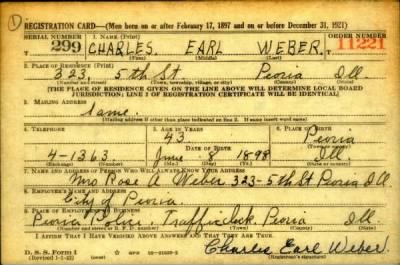 REGISTRATION CARD—(Men born on or after February 17, 1897 and on or before December 31, 1921)
SERIAL NUMBER 1. NAME (Print) ORDER NUMBER
299 CHARLES. EARL WEBER. 11221
(First) (Middle) (Last)
2. PLACE OF RESIDENCE (Print)
323, 5th St. Peoria Ill.
(Number and street) (Town, township, village, or city) (County) (State)
[THE PLACE OF RESIDENCE GIVEN ON THE LINE ABOVE WILL DETERMINE LOCAL BOARD
JURISDICTION; LINE 2 OF REGISTRATION CERTIFICATE WILL BE IDENTICAL]
3. MAILING ADDRESS
Same.
[Mailing address if other than place indicated on line 2. If same insert word same]
4. TELEPHONE 5. AGE IN YEARS 6. PLACE OF BIRTH
43. Peoria
DATE OF BIRTH
4-1363 June 8 1898 Ill.
(Exchange) (Number) (Mo.) (Day) (Yr.) (State or country)
7. NAME AND ADDRESS OF PERSON WHO WILL ALWAYS KNOW YOUR ADDRESS
Mrs Rose A Weber 323-5th St Peoria Ill.
8. EMPLOYER'S NAME AND ADDRESS
City of Peoria.
9. PLACE OF EMPLOYMENT OR BUSINESS
Peoria Police, Peoria Ill
(Number and street or R. F. D. number) (Town) (County) (State)
I AFFIRM THAT I HAVE VERIFIED ABOVE ANSWERS AND THAT THEY ARE TRUE.
D. S. S. Form 1 Charles Earl Weber.
(Revised 1-1-42) (Registrant's signature)